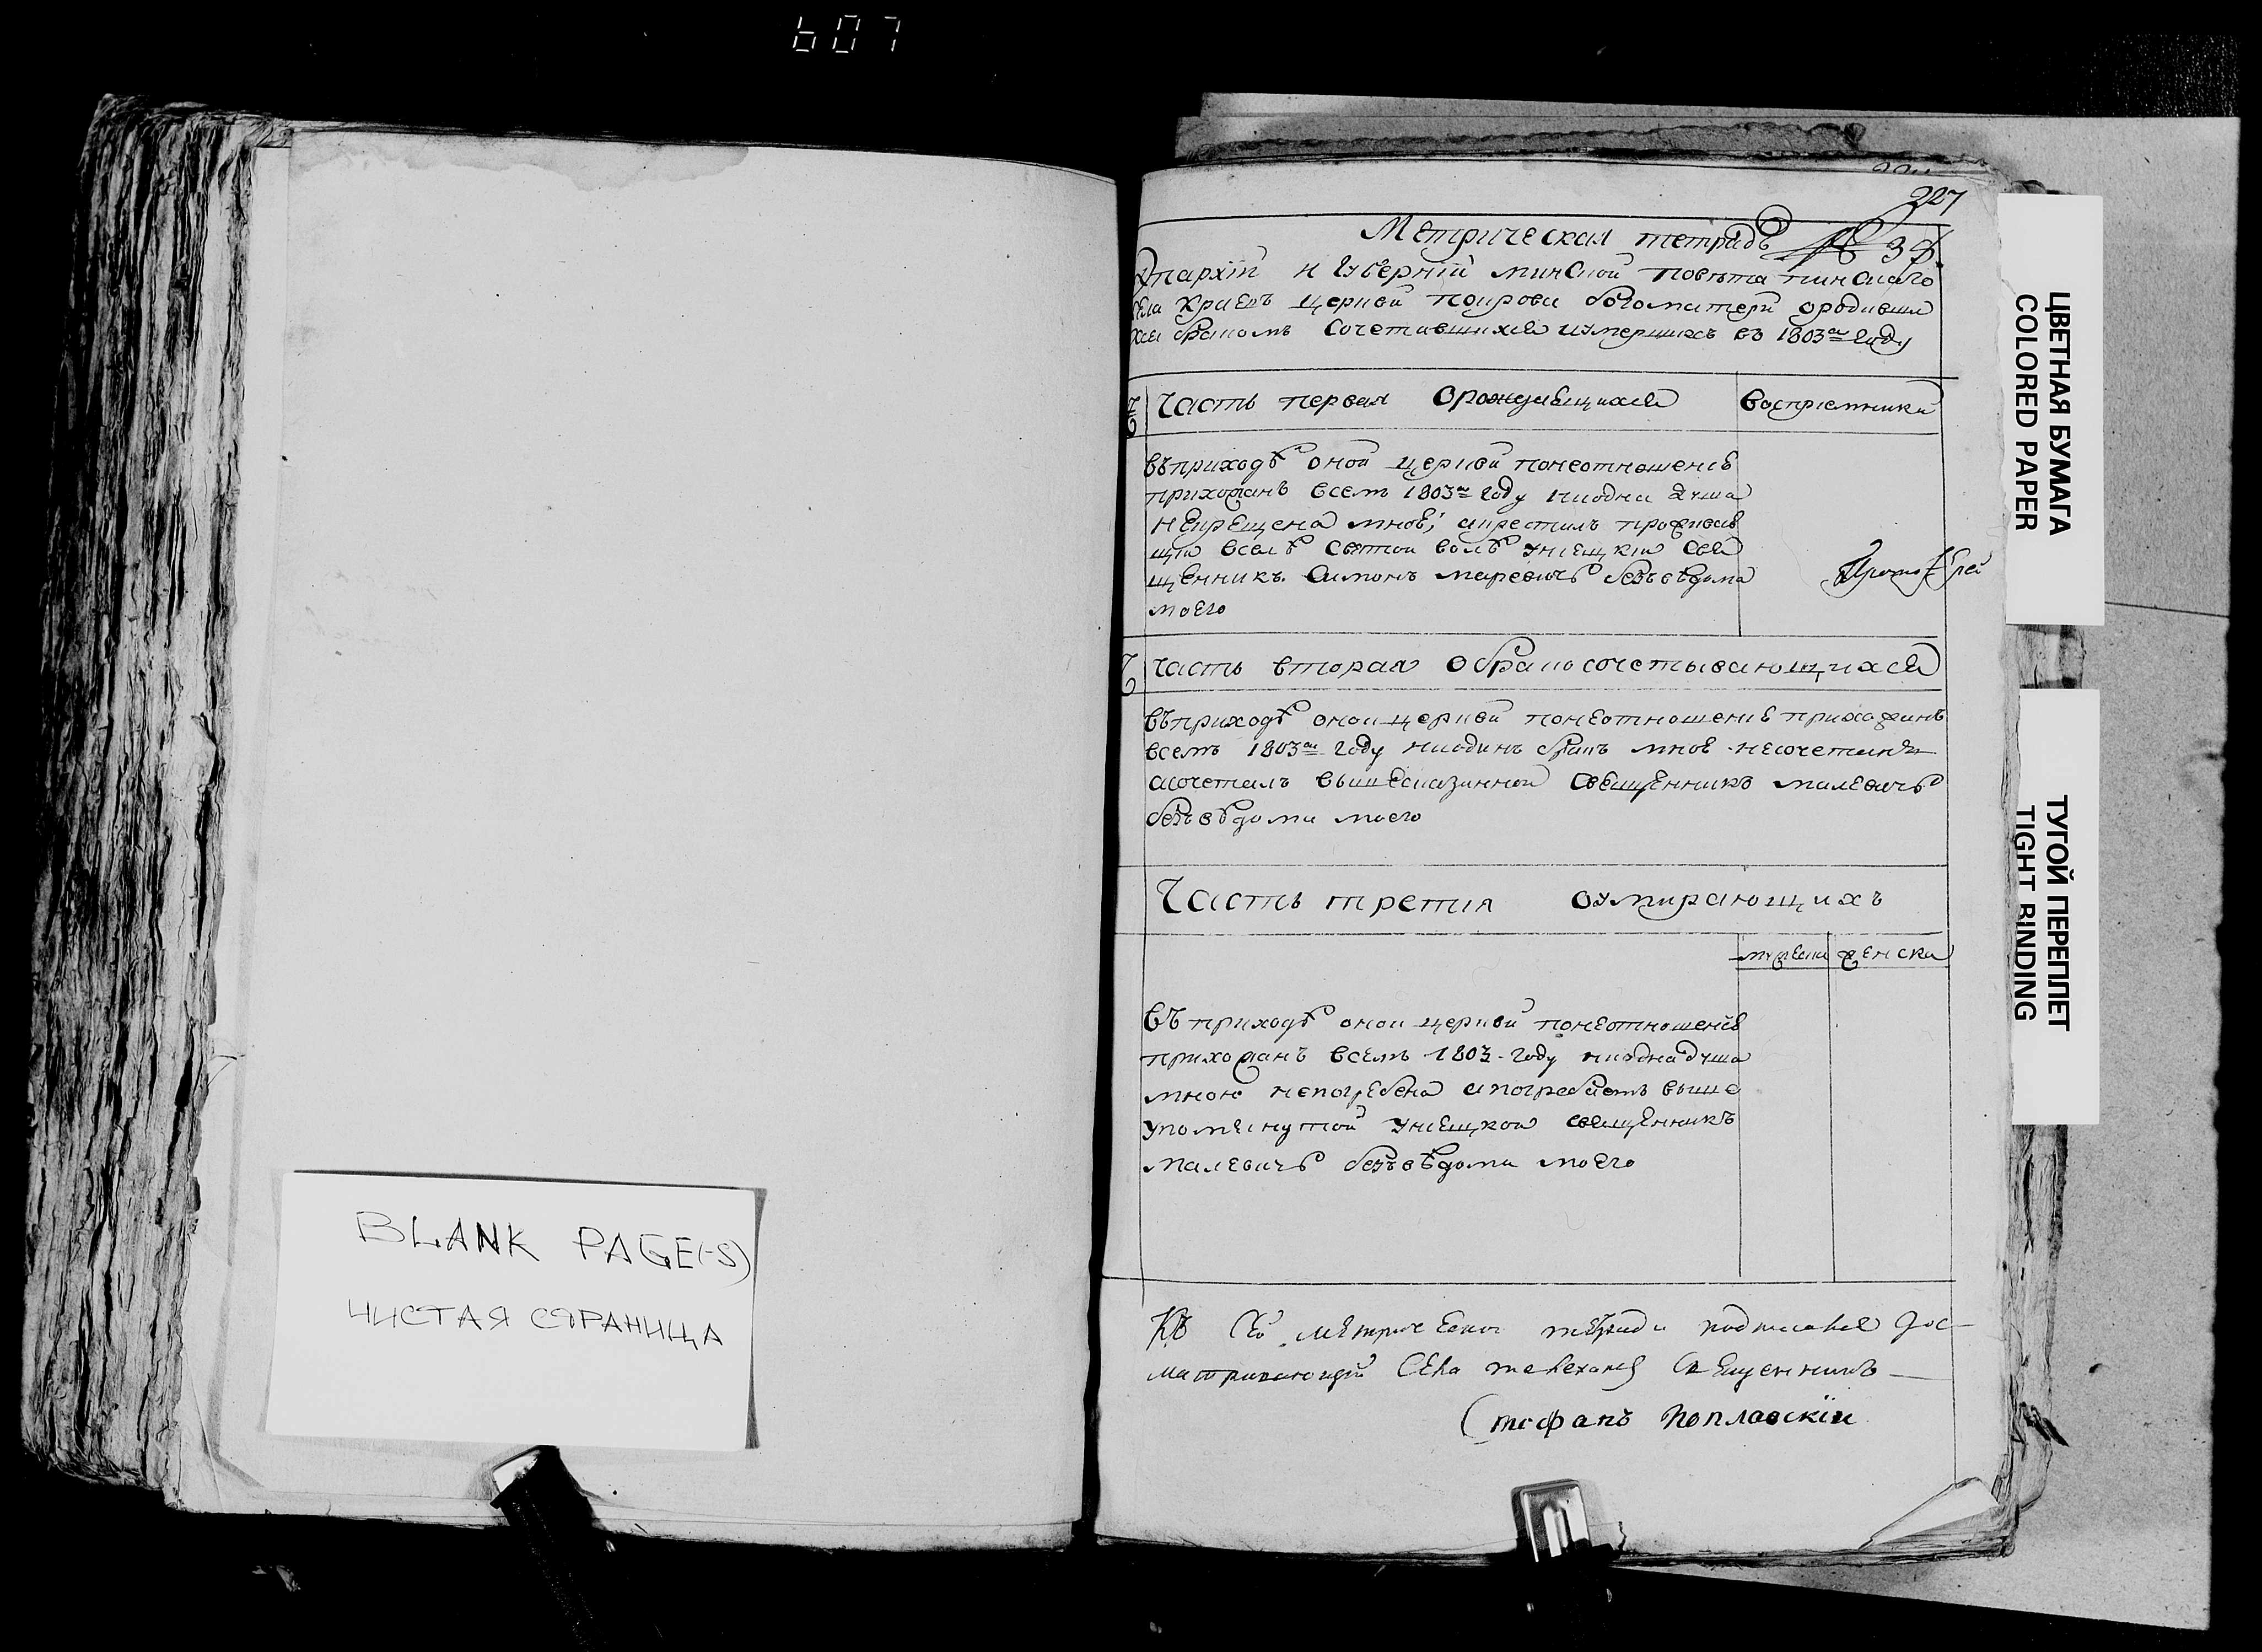 607
227
Метрическая тетрадь № 39.
Епархіи и Губерніи минской повѣта пинского
села Храпѣ церкви покрова богоматери ородивши
хся бракомъ сочетавшихся иумершихъ въ 1803м году
Часть первая Орождающихся воспріемники
въприходѣ оной церкви понеотношеніе
прихожанъ всемъ 1803м году ниодна душа
некрещена мною, акрестилъ проживаю
щій вселѣ святой волѣ уніецкій свя
щенникъ Симонъ малевичъ безъвѣдома
моего
Протоіерей
часть вторая обрако сочетывающихся
въприходѣ оной церкви понеотношеніе прихожанъ
всемъ 1803м году ниодинъ бракъ мною несочетанъ
асочеталъ вышесказанной священникъ малевичъ
безъвѣдома моего
Часть третія оумирающихъ
мужеска женска
въ приходѣ оной церкви понеотношеніе
прихожанъ всемъ 1803. году ниодна душа
мною непогребена апогребаетъ выше
упомянутой уніецкой священникъ
малевичъ безъвѣдома моего
Къ сей метрической тетради подписался дос
матривающій села телеханъ священникъ
Стефанъ Поплавскій
BLANK PAGE(-S)
ЧИСТАЯ СТРАНИЦА
ЦВЕТНАЯ БУМАГА
COLORED PAPER
ТУГОЙ ПЕРЕПЛЕТ
TIGHT BINDING